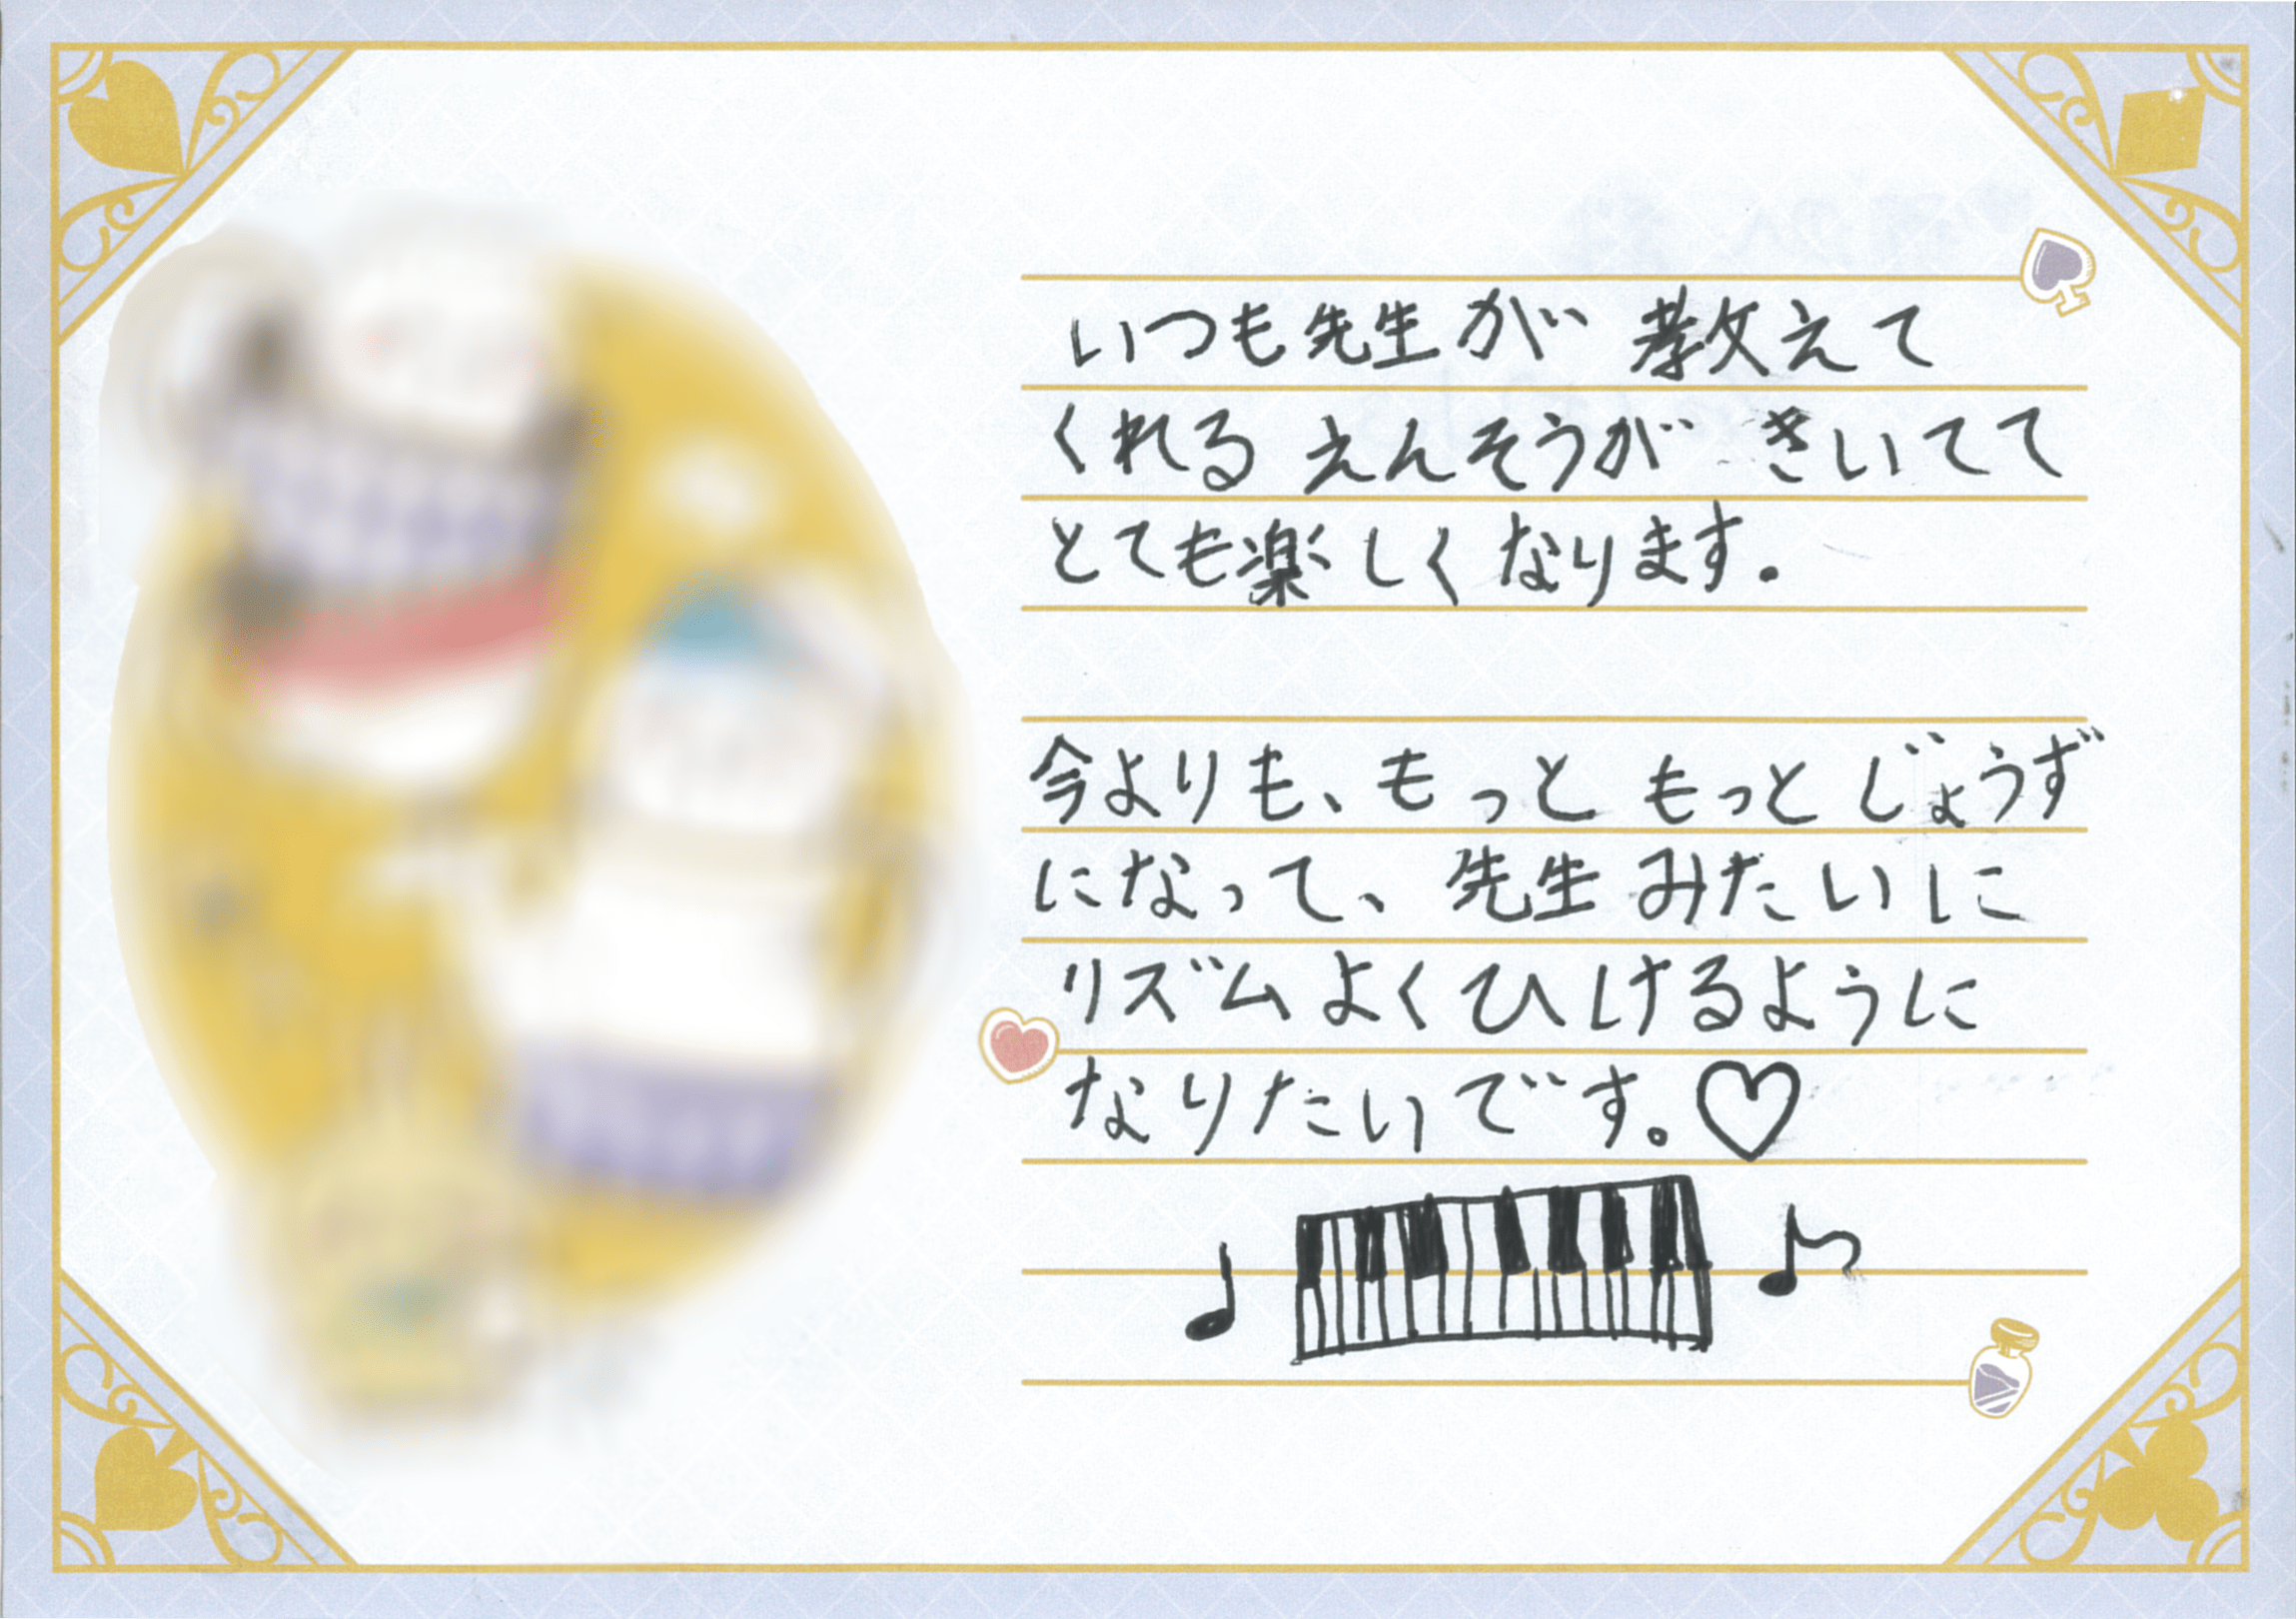 いつも先生が 教えて
くれる えんそうが きいてて
とても楽しく なります.
今よりも、もっと もっと じょうず
になって、先生 みたいに
リズム よく ひけるように
なりたいです。♡